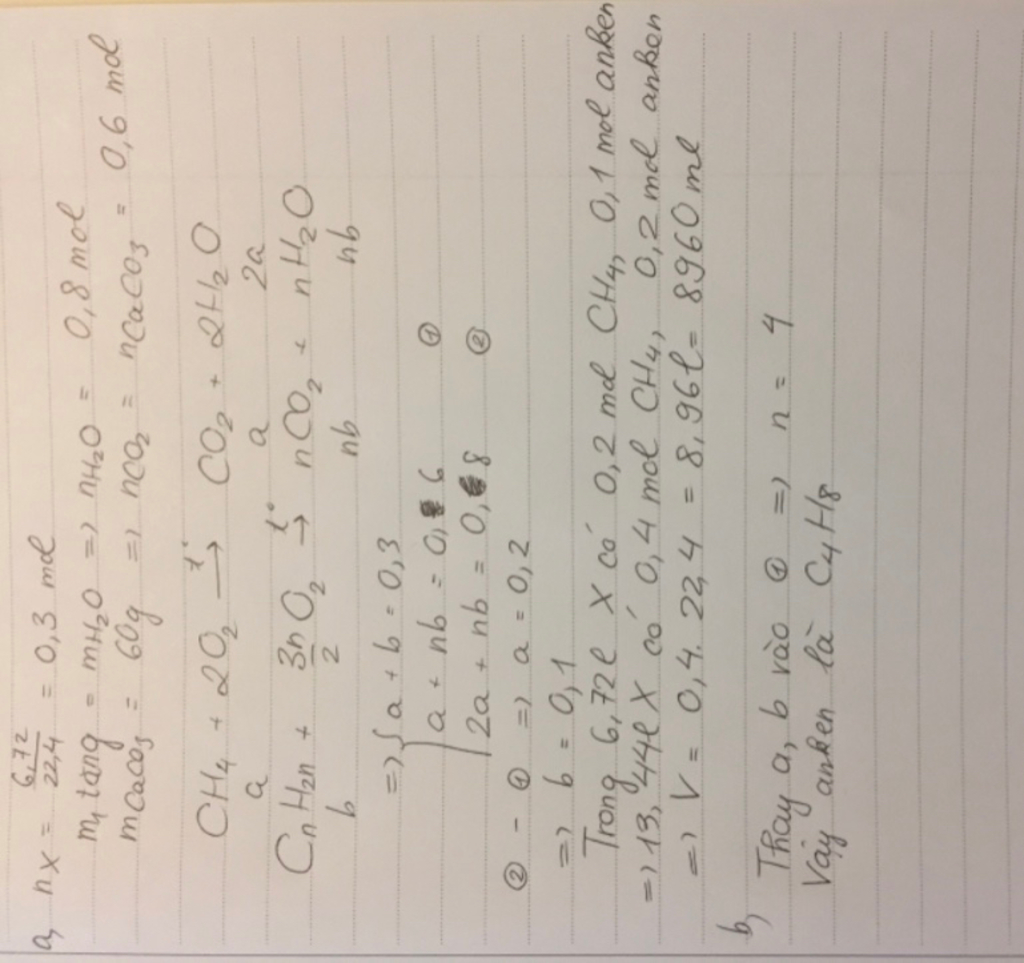 a, nX = 6,72/22,4 = 0,3 mol
m₁ tăng = mH₂O => nH₂O = 0,8 mol
mCaCO₃ = 60g => nCO₂ = nCaCO₃ = 0,6 mol
CH₄ + 2O₂ →(t°) CO₂ + 2H₂O
a a 2a
CnH2n + 3n/2 O₂ →(t°) nCO₂ + nH₂O
b nb nb
=> { a + b = 0,3
a + nb = 0,6 ①
2a + nb = 0,8 ②
② - ① => a = 0,2
=> b = 0,1
Trong 6,72l X có 0,2 mol CH₄, 0,1 mol anken
=> 13,44l X có 0,4 mol CH₄, 0,2 mol anken
=> V = 0,4. 22,4 = 8,96l = 8960 ml
b, Thay a, b vào ① => n = 4
Vậy anken là C₄H₈